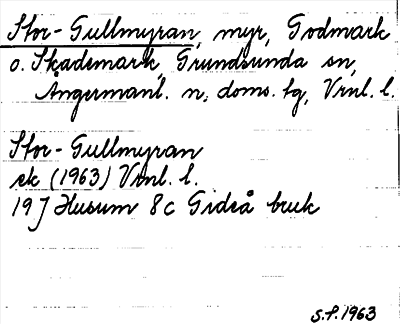 Stor-Gullmyran, myr, Godmark
o. Skademark, Grundsunda sn,
Ångermanl. n. doms. tg, Vrnl. l.
Stor-Gullmyran
ek (1963) Vrnl. l.
19J Husum 8c Gideå bruk
S.F. 1963